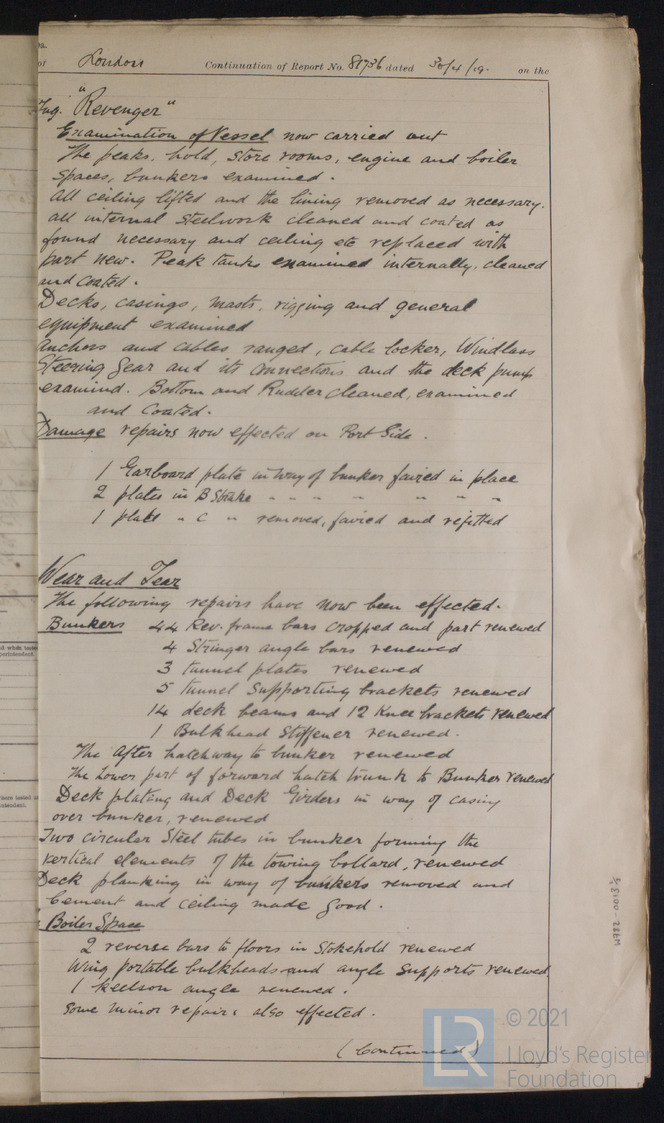 London Continuation of Report No. 81736 dated 30/4/19. on the
Tug. "Revenger"
Examination of Vessel now carried out
The peaks, hold, store rooms, engine and boiler
spaces, bunkers examined.
All ceiling lifted and the lining removed as necessary.
all internal steelwork cleaned and coated as
found necessary and ceiling etc replaced with
part new. Peak tanks examined internally, cleaned
and coated.
Decks, casings, masts, rigging and general
equipment examined
Anchors and cables ranged, cable locker, Windlass
Steering Gear and its connections and the deck pump
examined. Bottom and Rudder cleaned, examined
and coated.
Damage repairs now effected on Port Side.
1 Garboard plate in way of bunker faired in place
2 plates in B Strake " " " " " "
1 plate " C " removed, faired and refitted
Wear and Tear
The following repairs have now been effected.
Bunkers 44 Rev. frame bars cropped and part renewed
4 Stringer angle bars renewed
3 tunnel plates renewed
5 tunnel supporting brackets renewed
14 deck beams and 12 Knee brackets renewed
1 Bulkhead Stiffener renewed.
The After hatchway to bunker renewed
The lower part of forward hatch trunk to Bunker renewed
Deck plating and Deck Girders in way of casing
over bunker, renewed
Two circular Steel tubes in bunker forming the
vertical elements of the towing bollard, renewed
Deck planking in way of bunkers removed and
cement and ceiling made good.
Boiler Space
2 reverse bars to floors in Stokehold renewed
Wing portable bulkheads and angle supports renewed,
1 keelson angle renewed.
Some minor repairs also effected.
(Continued)
© 2021
LR
Lloyd's Register
Foundation